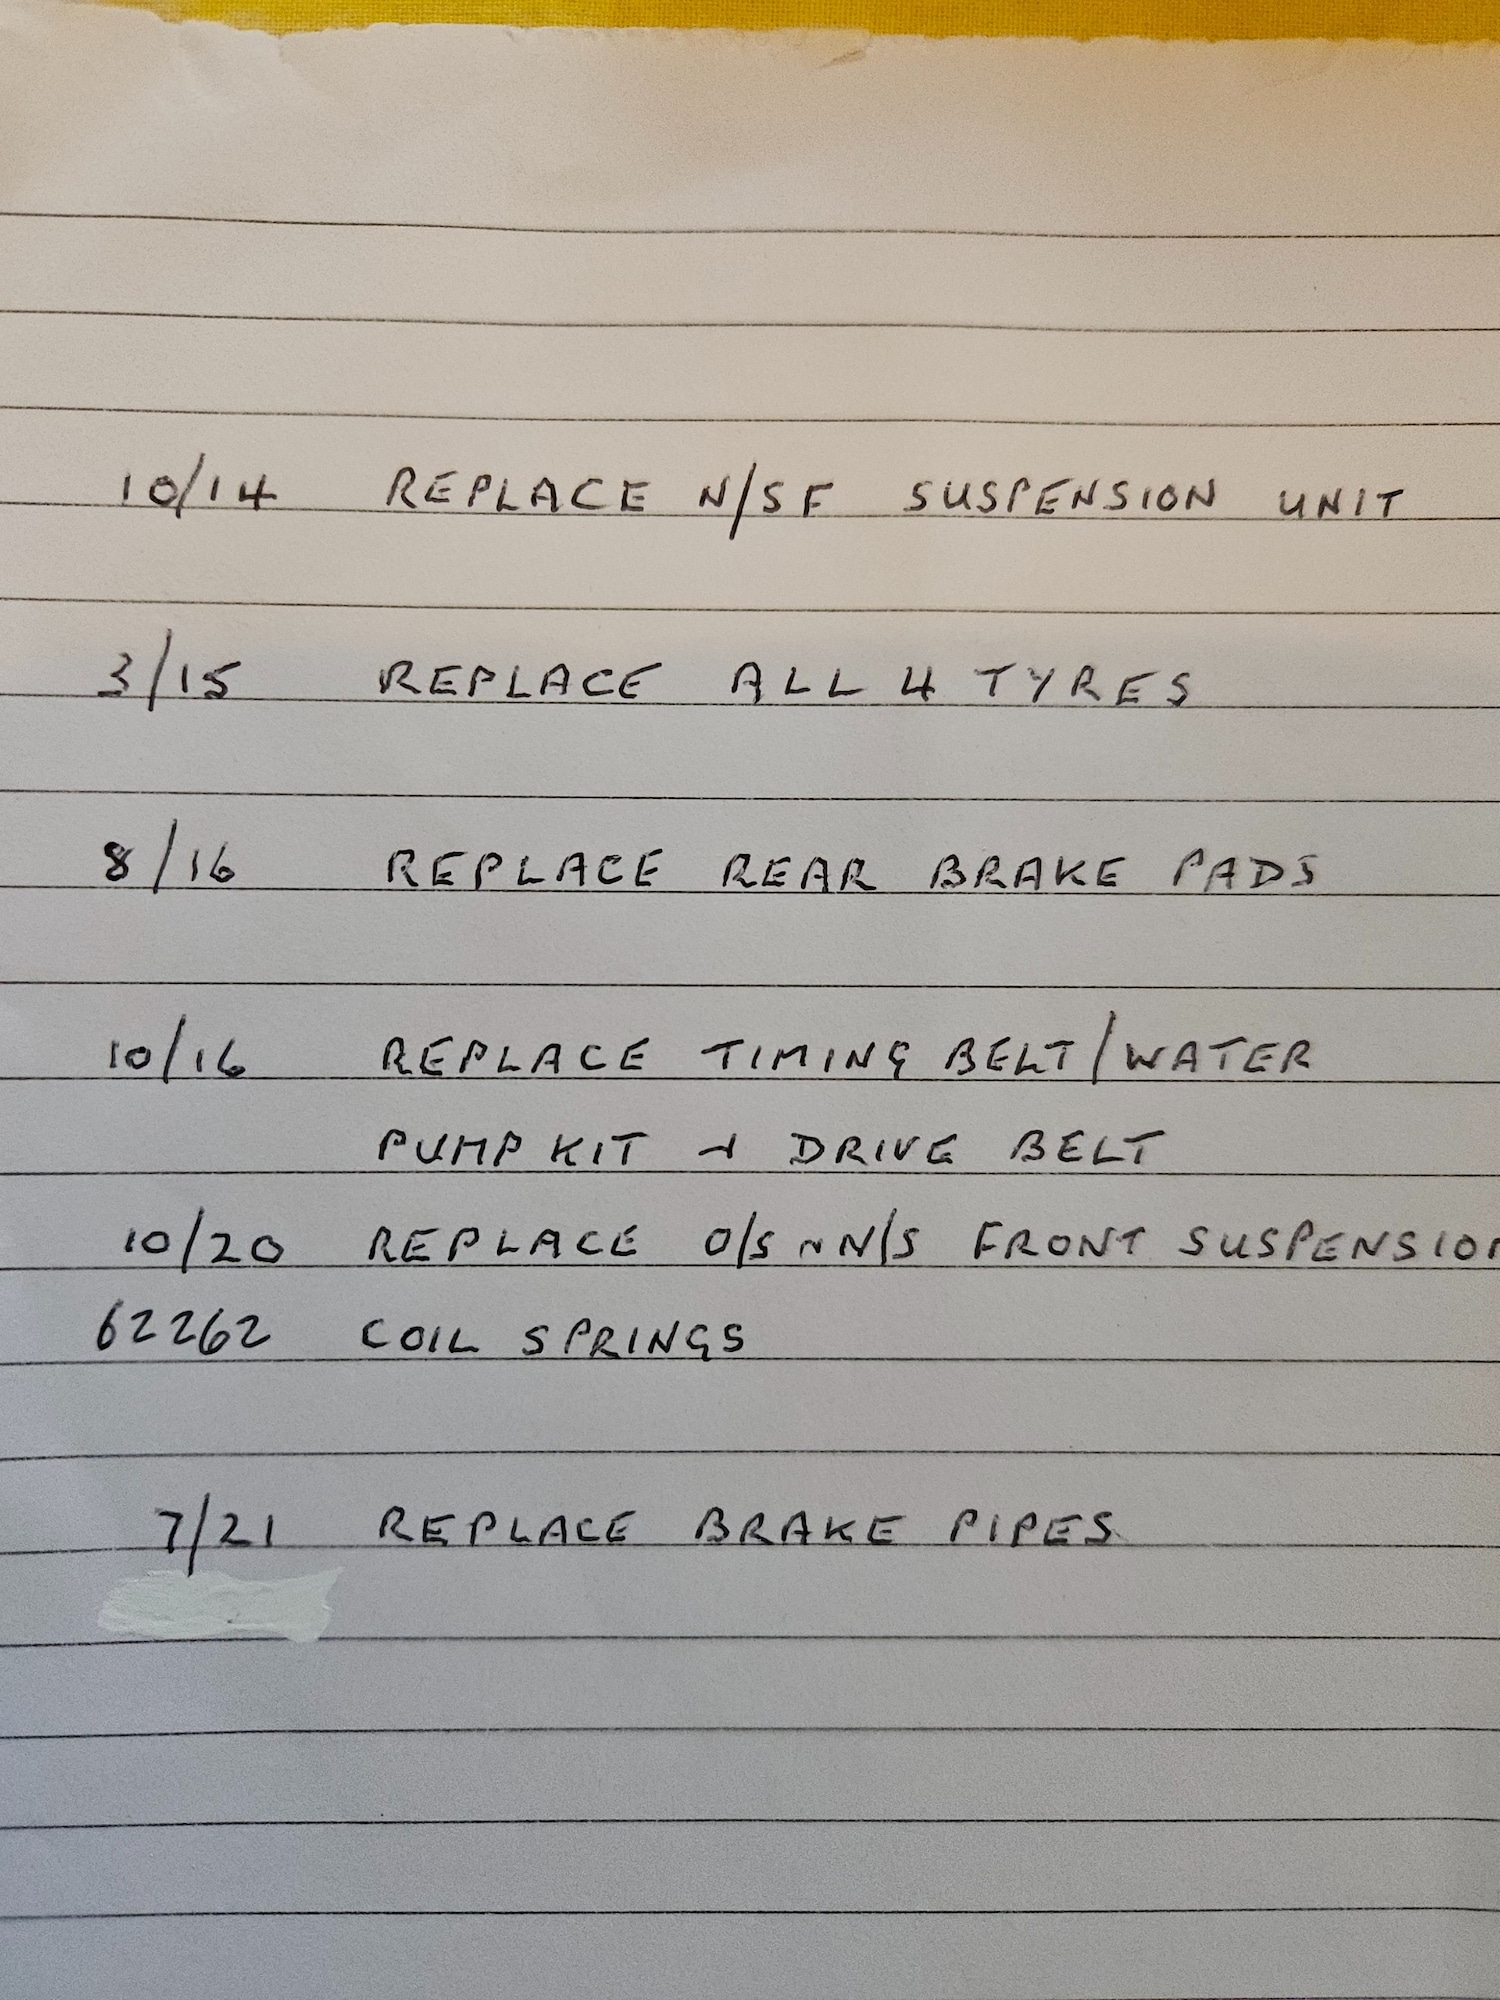 10/14 REPLACE N/SF SUSPENSION UNIT
3/15 REPLACE ALL 4 TYRES
8/16 REPLACE REAR BRAKE PADS
10/16 REPLACE TIMING BELT/WATER
PUMP KIT + DRIVE BELT
10/20 REPLACE O/S N N/S FRONT SUSPENSION
62262 COIL SPRINGS
7/21 REPLACE BRAKE PIPES